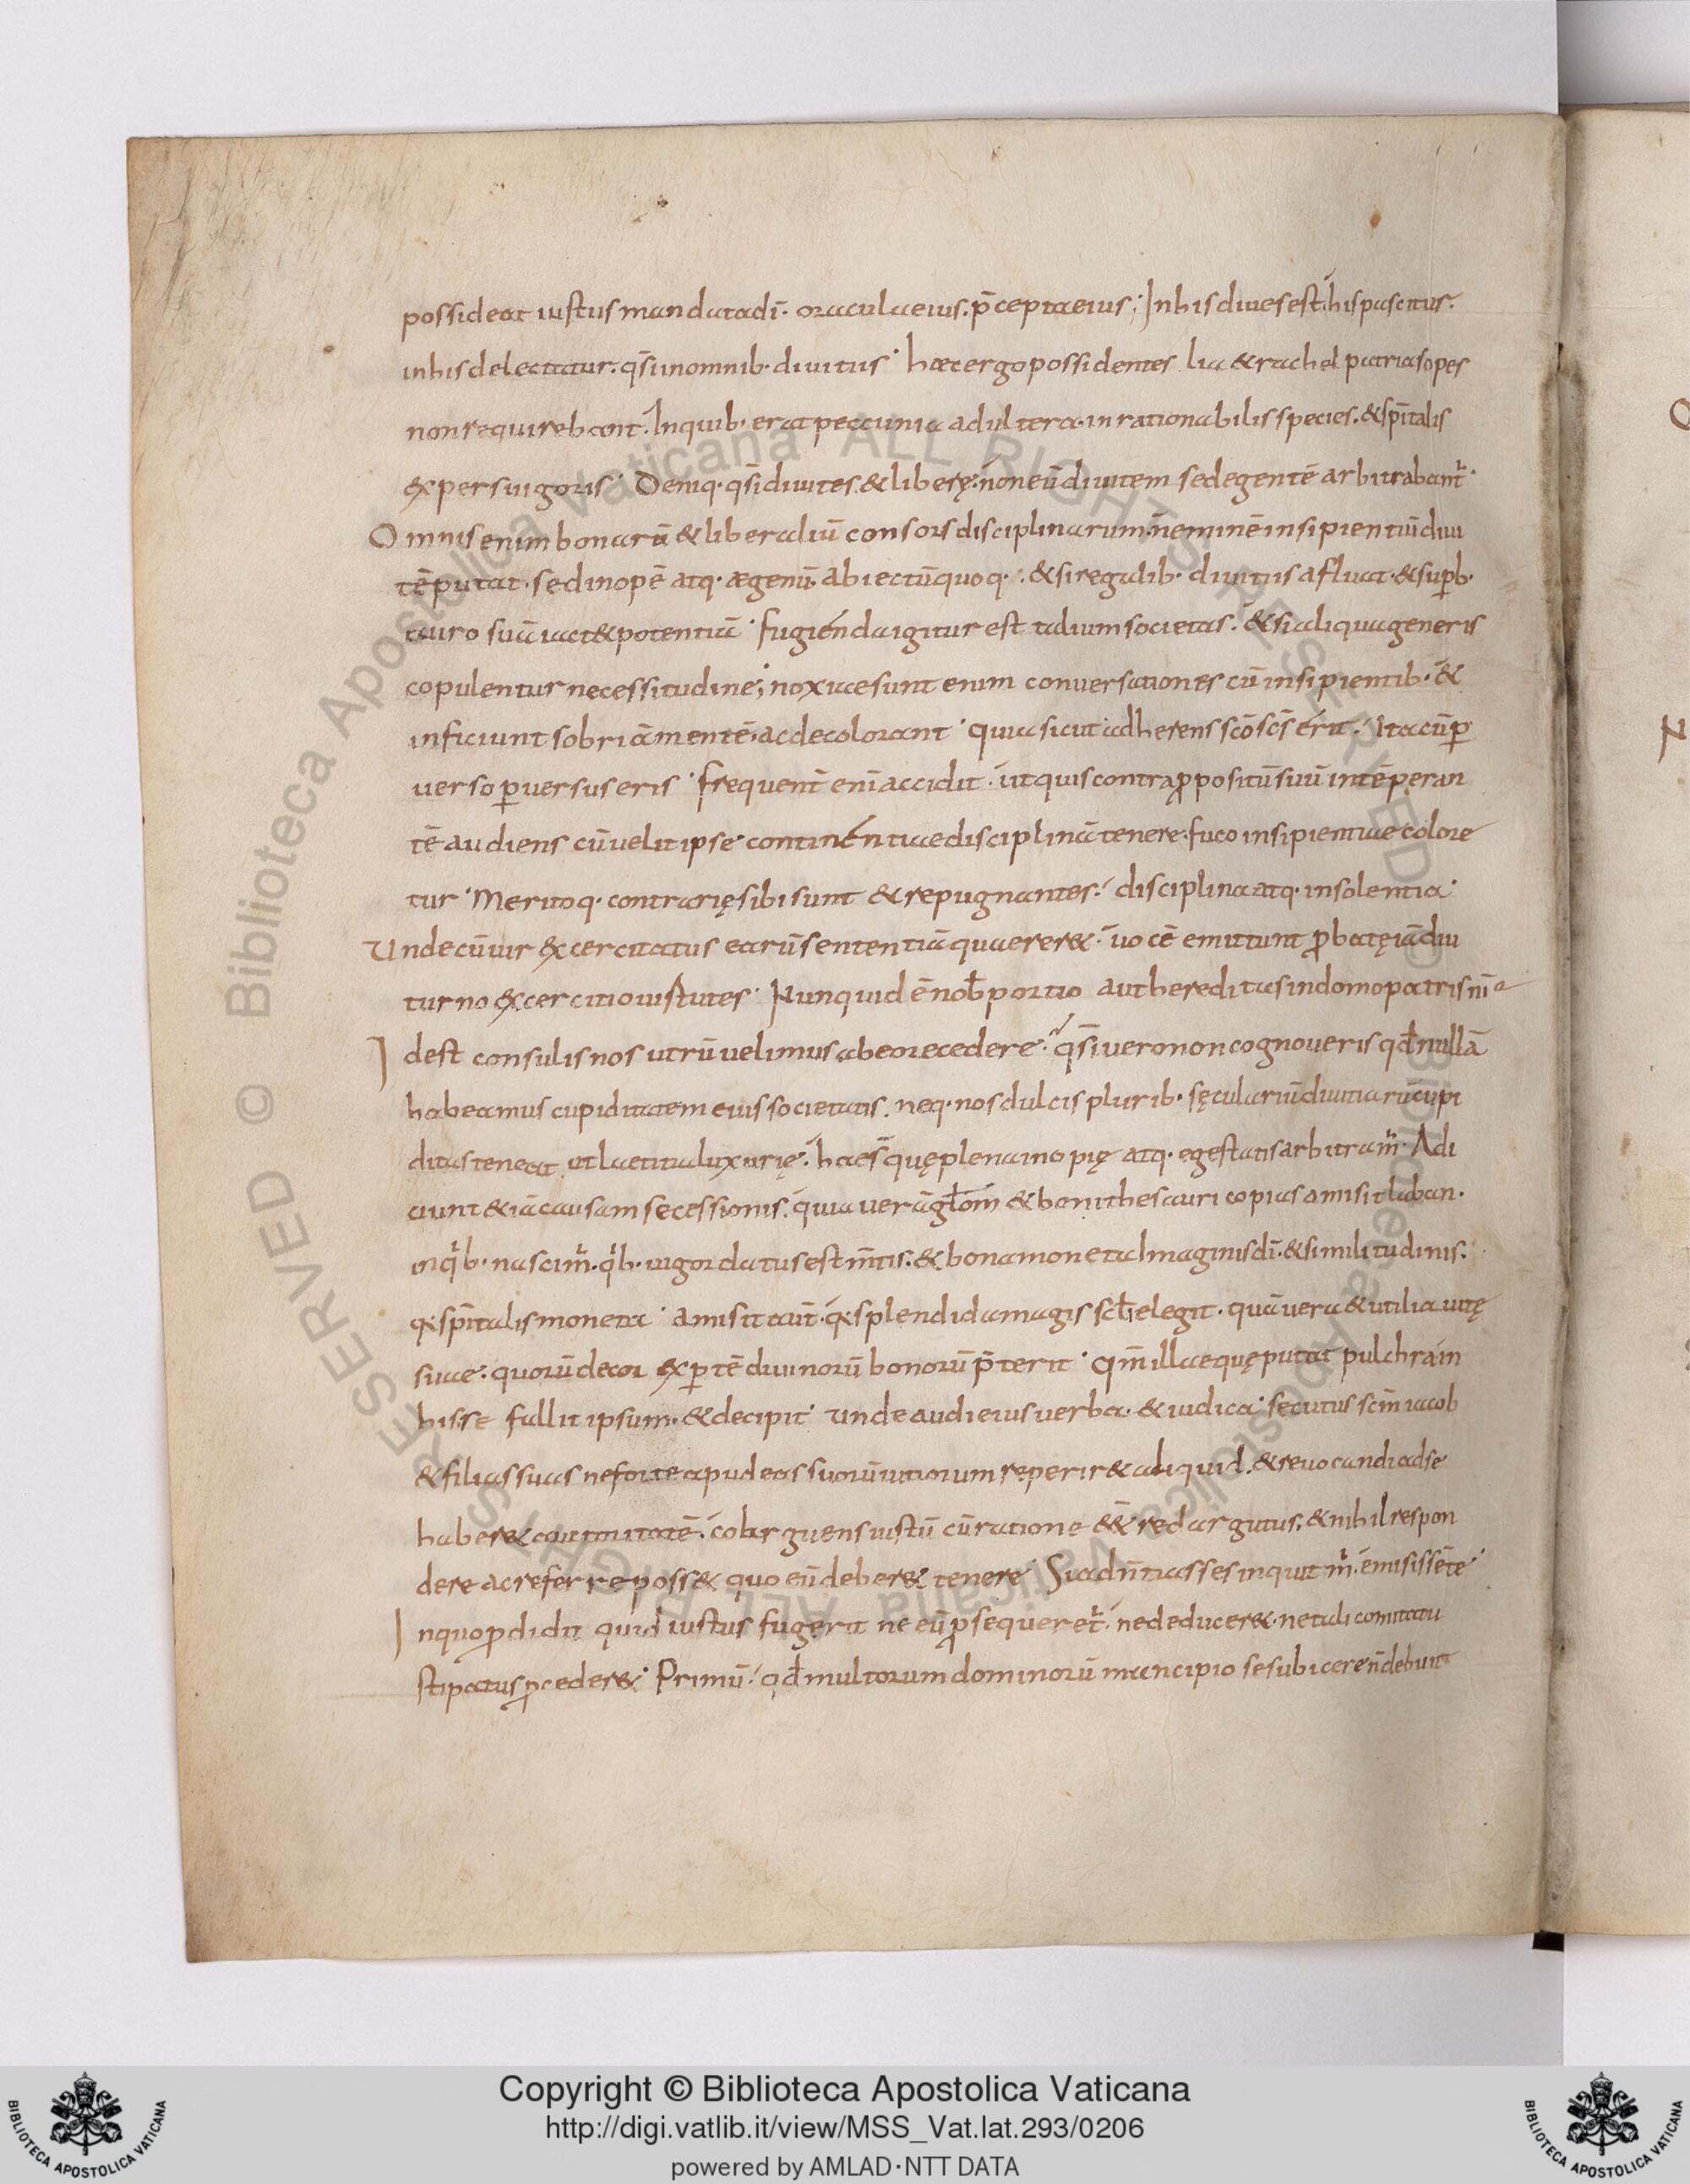 possideat iustus mandata dī· oracula eius· p̄cepta eius; In his diues est· his pascitur·
in his delectatur· q̄si in omnib· diuitiis· haec ergo possidentes lia & rachel patrias opes
non requirebant· In quib· erat peccunia adultera· inrationabilis species· & spītalis
expers uigoris· Deniq· q̄si diuites & liberę· non eū diuitem sed egentē arbitrabant̄·
Omnis enim bonarū & liberaliū consors disciplinarum· neminē insipientiū diui
tē putat· sed inopē atq· aegenū· abiectū quoq·· & si regalib· diuitiis afluat· & sup̱b·
auro suā iact& potentiā· fugienda igitur est talium societas· & si aliqua generis
copulentur necessitudine; noxiae sunt enim conuersationes cū insipientib· &
inficiunt sobriā mentē· ac decolorant· quia sicut adherens scō scs̄ erit· Ita cū ꝑ
uerso ꝑuersus eris· frequent̄ enī accidit· ut quis contra ꝓpositū suū intēperan
tē audiens cū uelit ipse continentiae disciplinā tenere· fuco insipientiae colore
tur· Meritoq· contrarię sibi sunt & repugnantes· disciplina atq· insolentia·
Unde cū uir excercitatus earū sententiā quaerer&· uocē emittunt ꝓbatę iā diu
turno excercitio uirtutes· Nunquid ē nob̄ portio aut hereditas in domo patris nr̄i
Idest consulis nos utrū uelimus ab eo recedere· q̄si uero non cognoueris qđ nullā
habeamus cupiditatem eius societatis· neq· nos dulcis plurib· sęculariū diuitiarū cupi
ditas teneat ut laetitia luxurię· haec ē quę plena inopię atq· egestatis arbitram̄· Adi
ciunt & iā causam secessionis· quia uerā gl̄om & boni thesauri copias amisit laban·
in qⁱb· nascim̄· qⁱb· uigor datus est m̄tis· & bona moneta Imaginis dī· & similitudinis·
q̄ spītalis moneta· amisit aūt· q̄ splendida magis scl̄i elegit· quā uera & utilia uitę
suae· quorū decor expertē diuinorū bonorū p̄terit· qm̄ illa eque putat pulchra in
hisse fallit ipsum· & decipit· unde audi eius uerba· & iudica· secutus scm̄ iacob
& filias suas ne forte apud eas suorū uitiorum reperir& aliquid· & reuocandi ad se
haber& auctoritatē· coarguens iustū cū ratione & & redargutus· & nihil respon
dere ac referre poss& quo eū deber& tenere· Si adn̄tiasses inquit m̄· emisissē te·
In quo ꝓdidit quid iustus fugerit ne eū ꝓsequeret̄· ne deducer&· ne tali comitatu
stipatus ꝓceder&· Primū· qđ multorum dominorū mancipio se subicere n̄ debuit
Copyright © Biblioteca Apostolica Vaticana
http://digi.vatlib.it/view/MSS_Vat.lat.293/0206
powered by AMLAD·NTT DATA